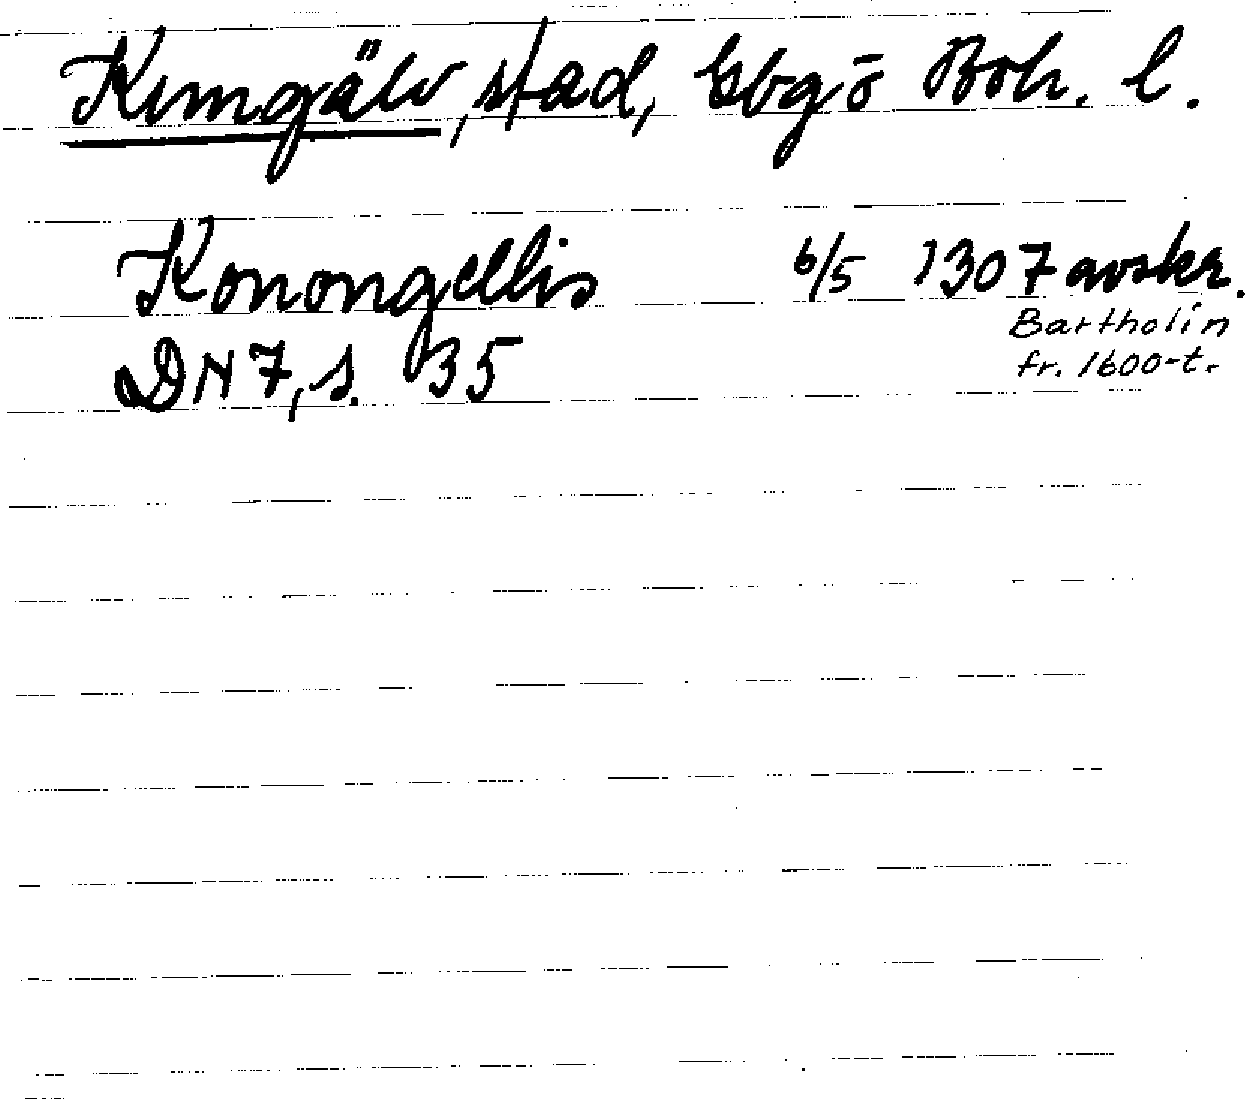 Kungälv, stad, Gbg o Boh. l.
Konongellis 6/5 1307 avskr.
Bartholin
DN 7, s. 35
fr. 1600-t.